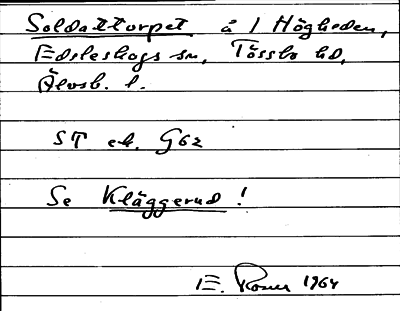 Soldattorpet å 1 Högheden,
Edsleskogs sn, Tössbo hd,
Älvsb. l.
ST ek. G62
Se Kläggerud!
E. Rosen 1964